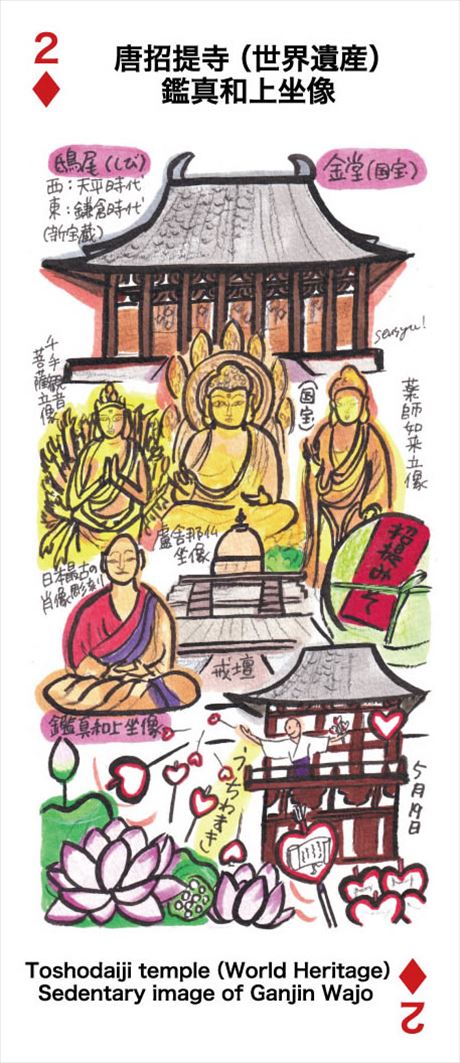 2
唐招提寺（世界遺産）
鑑真和上坐像
鴟尾(しび)
西：天平時代
東：鎌倉時代
(新宝蔵)
金堂(国宝)
千手観音
菩薩立像
国宝
薬師如来立像
盧舎那仏
坐像
日本最古の
肖像彫刻
招提みそ
戒壇
鑑真和上坐像
うちわまき
5月19日
Toshodaiji temple (World Heritage)
Sedentary image of Ganjin Wajo
2